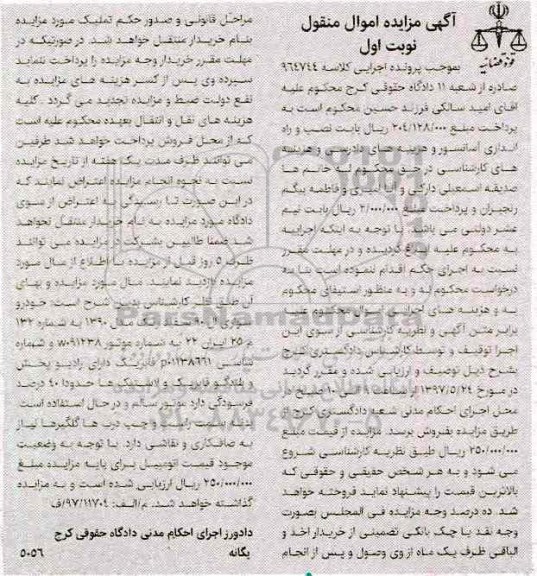 آگهی مزایده اموال منقول
نوبت اول
قوه قضائیه
بموجب پرونده اجرایی کلاسه ۹۶۴۷۴۴
صادره از شعبه ۱۱ دادگاه حقوقی کرج محکوم علیه
آقای امید سالکی فرزند حسین محکوم است به
پرداخت مبلغ ۲۰۴/۱۲۸/۰۰۰ ریال بابت نصب و راه
اندازی آسانسور و هزینه های دادرسی و هزینه
های کارشناسی در حق محکوم له خانم ها
صدیقه اسمعیلی دارکی و آنا و فاطمه بیگم
رنجبران و پرداخت مبلغ ۲/۰۰۰/۰۰۰ ریال بابت نیم
عشر دولتی می باشد. با توجه به اینکه اجراییه
به محکوم علیه ابلاغ گردیده و در مهلت مقرر
نسبت به اجرای حکم اقدام ننموده است بنا به
درخواست محکوم له و به منظور استیفای محکوم
به و هزینه های اجرایی
برابر متن آگهی و نظریه کارشناسی از سوی این
اجرا توقیف و توسط کارشناس دادگستری کرج
بشرح ذیل توصیف و ارزیابی شده و مقرر گردید
در مورخ ۱۳۹۷/۵/۲۴ از ساعت ۹ الی ۱۰ صبح در
محل اجرای احکام مدنی شعبه دادگستری کرج از
طریق مزایده بفروش برسد. مزایده از قیمت مبلغ
۲۵۰/۰۰۰/۰۰۰ ریال طبق نظریه کارشناسی شروع
می شود و به هر شخص حقیقی و حقوقی که
بالاترین قیمت را پیشنهاد نماید فروخته خواهد
شد. ده درصد وجه مزایده فی المجلس بصورت
وجه نقد یا چک بانکی تضمینی از خریدار اخذ و
الباقی ظرف یک ماه از وی وصول و پس از انجام
مراحل قانونی و صدور حکم تملیک مورد مزایده
بنام خریدار منتقل خواهد شد. در صورتیکه در
مهلت مقرر خریدار وجه مزایده را پرداخت ننماید
سپرده وی پس از کسر هزینه های مزایده به
نفع دولت ضبط و مزایده تجدید می گردد. کلیه
هزینه های نقل و انتقال بعهده محکوم علیه است
که از محل فروش پرداخت خواهد شد طرفین
می توانند ظرف مدت یک هفته از تاریخ مزایده
نسبت به نحوه انجام مزایده اعتراض نمایند که
در این صورت تا رسیدگی به اعتراض از سوی
دادگاه مورد مزایده به نام خریدار منتقل نخواهد
شد ضمنا طالبین بشرکت در مزایده می توانند
ظرف ۵ روز قبل از مزایده با اطلاع از مال مورد
مزایده بازدید نمایند. مال مورد مزایده و بهای
آن طبق نظر کارشناس بدین شرح است: خودرو
سواری مدل ۱۳۹۰ به شماره ۱۳۲
م ۲۵ ایران ۲۲ به شماره موتور w۰۹۱۲۳۸ و شماره
شاسی p۰۱۱۳۸۶۶۱ دارای رادیو پخش
و بلندگو فابریک و لاستیک ها حدودا ۴۰ درصد
فرسودگی دارد موتور سالم و در حال استفاده است
بدنه سمت راننده و چپ درب ها گلگیرها نیاز
به صافکاری و نقاشی دارد. با توجه به وضعیت
موجود قیمت اتومبیل برای پایه مزایده مبلغ
۲۵۰/۰۰۰/۰۰۰ ریال ارزیابی شده است و به مزایده
گذاشته خواهد شد. م/الف: ۹۷/۱۱۷۰۴/ف
دادورز اجرای احکام مدنی دادگاه حقوقی کرج
یگانه
۵۰۵۶
ParsNamadData
۰۲۱-۸۸۳۴۹۶۷۰-۵